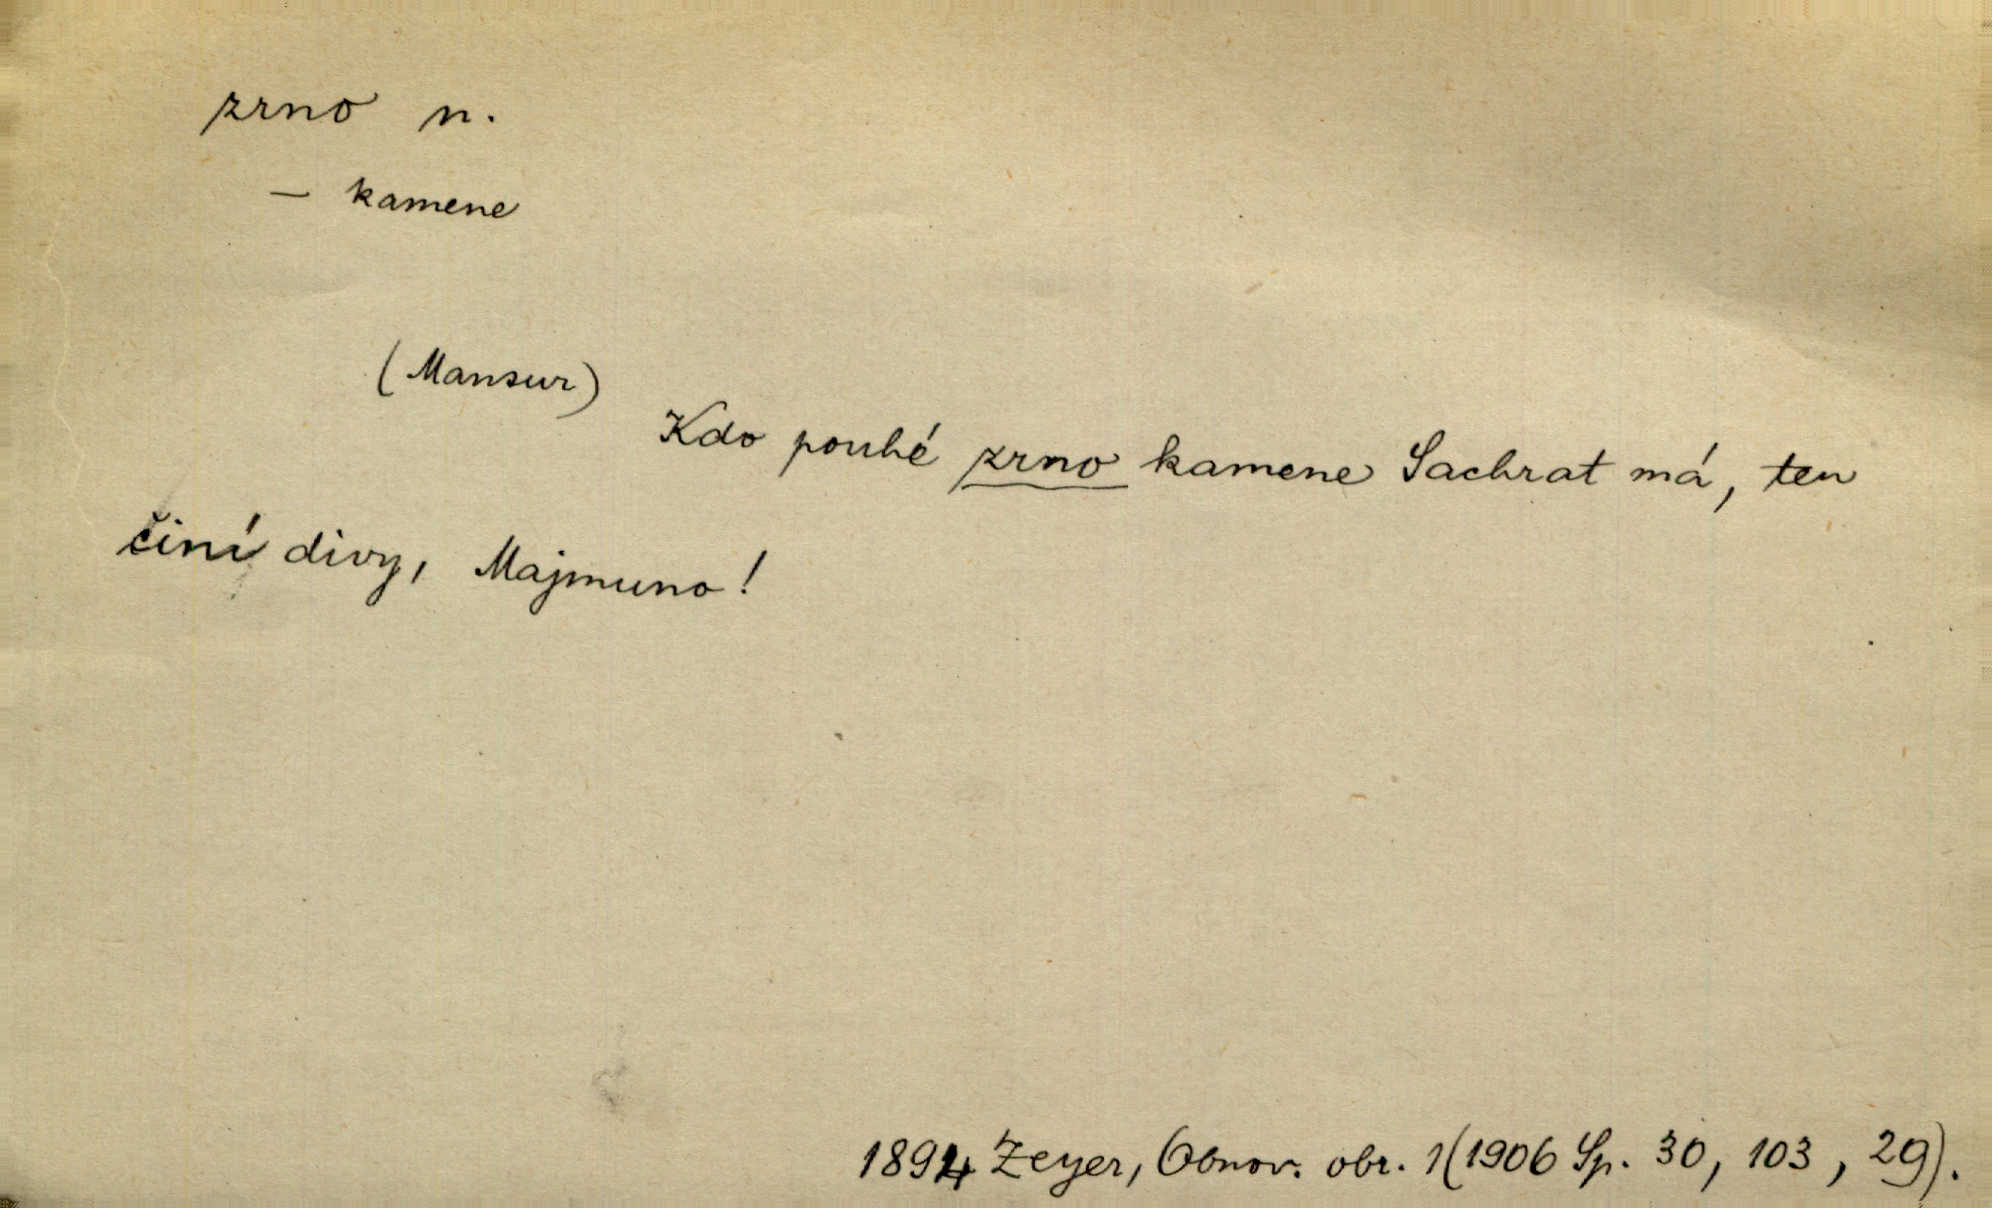 zrno n.
— kamene
(Mansur)
Kdo pouhé zrno kamene Sachrat má, ten
činí divy, Majmuno!
1894 Zeyer, Obnov. obr. 1(1906 Sp. 30, 103, 29).